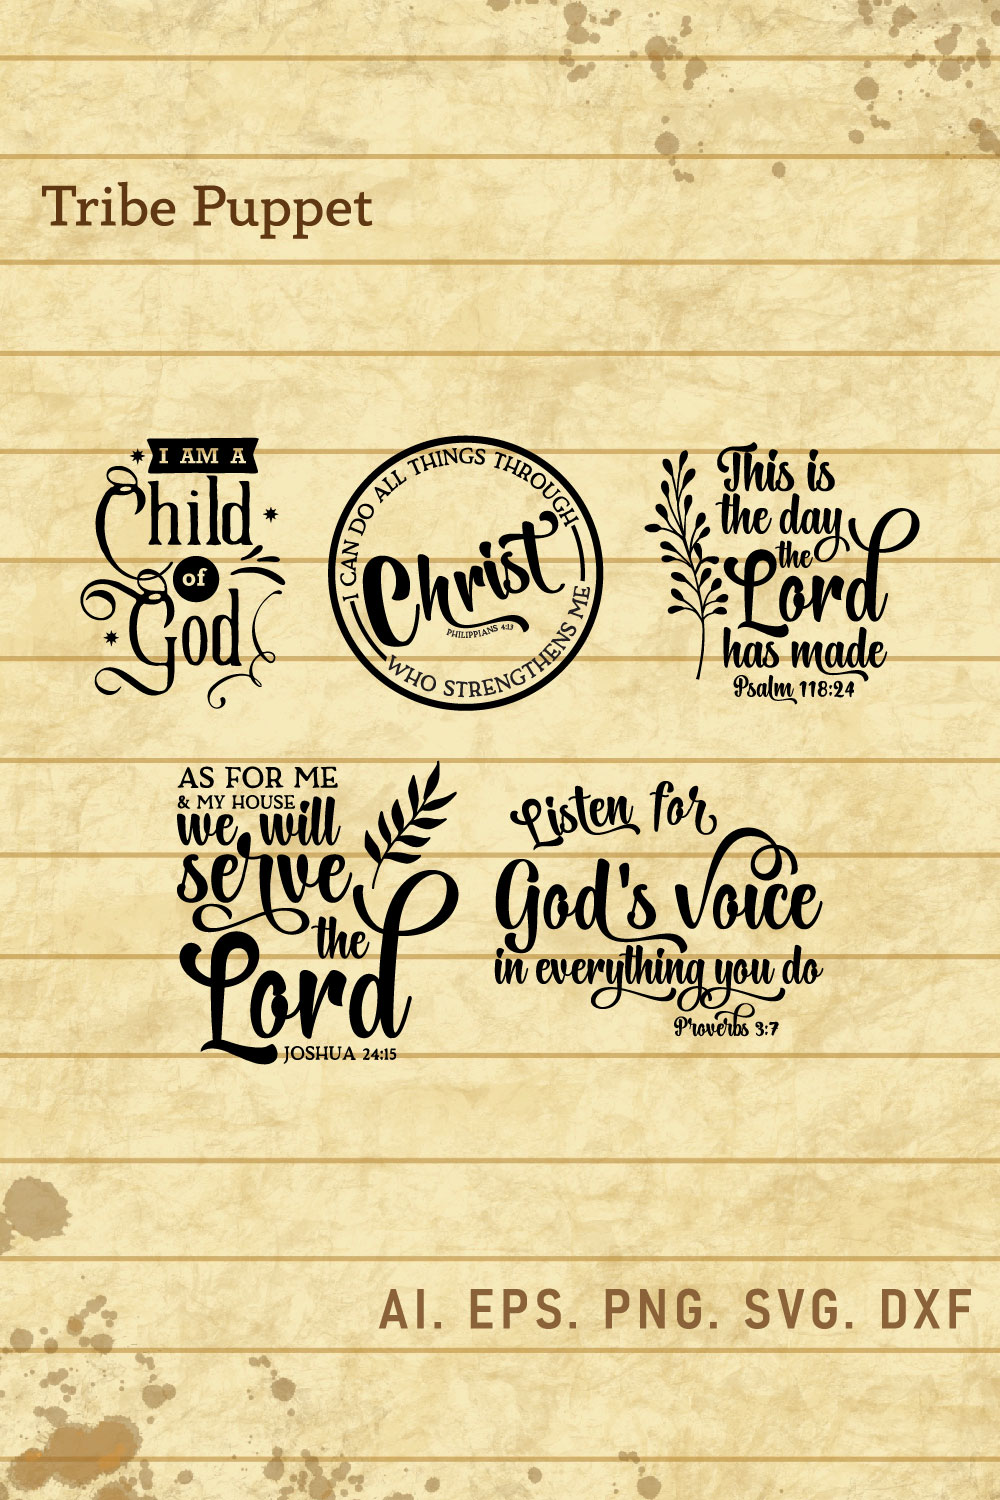 Tribe Puppet
I AM A
Child
of
God
I CAN DO ALL THINGS THROUGH
Christ
PHILIPPIANS 4:13
WHO STRENGTHENS ME
This is
the day
the
Lord
has made
Psalm 118:24
AS FOR ME
& MY HOUSE
we will
serve
the
Lord
JOSHUA 24:15
Listen for
God's voice
in everything you do
Proverbs 3:7
AI. EPS. PNG. SVG. DXF